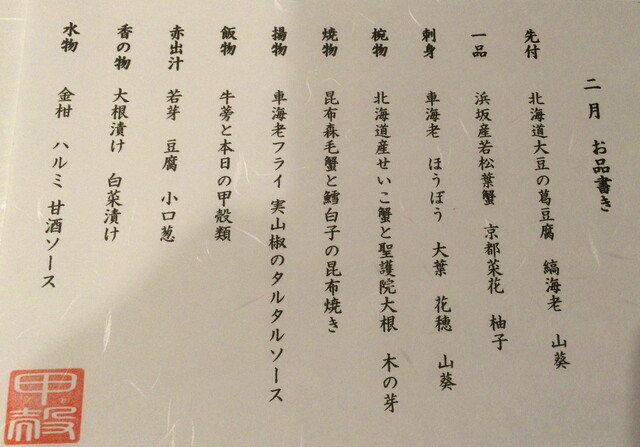 二月 お品書き
先付 北海道大豆の葛豆腐 縞海老 山葵
一品 浜坂産若松葉蟹 京都菜花 柚子
刺身 車海老 ほうぼう 大葉 花穂 山葵
椀物 北海道産せいこ蟹と聖護院大根 木の芽
焼物 昆布森毛蟹と鱈白子の昆布焼き
揚物 車海老フライ 実山椒のタルタルソース
飯物 牛蒡と本日の甲殻類
赤出汁 若芽 豆腐 小口葱
香の物 大根漬け 白菜漬け
水物 金柑 ハルミ 甘酒ソース
甲殻